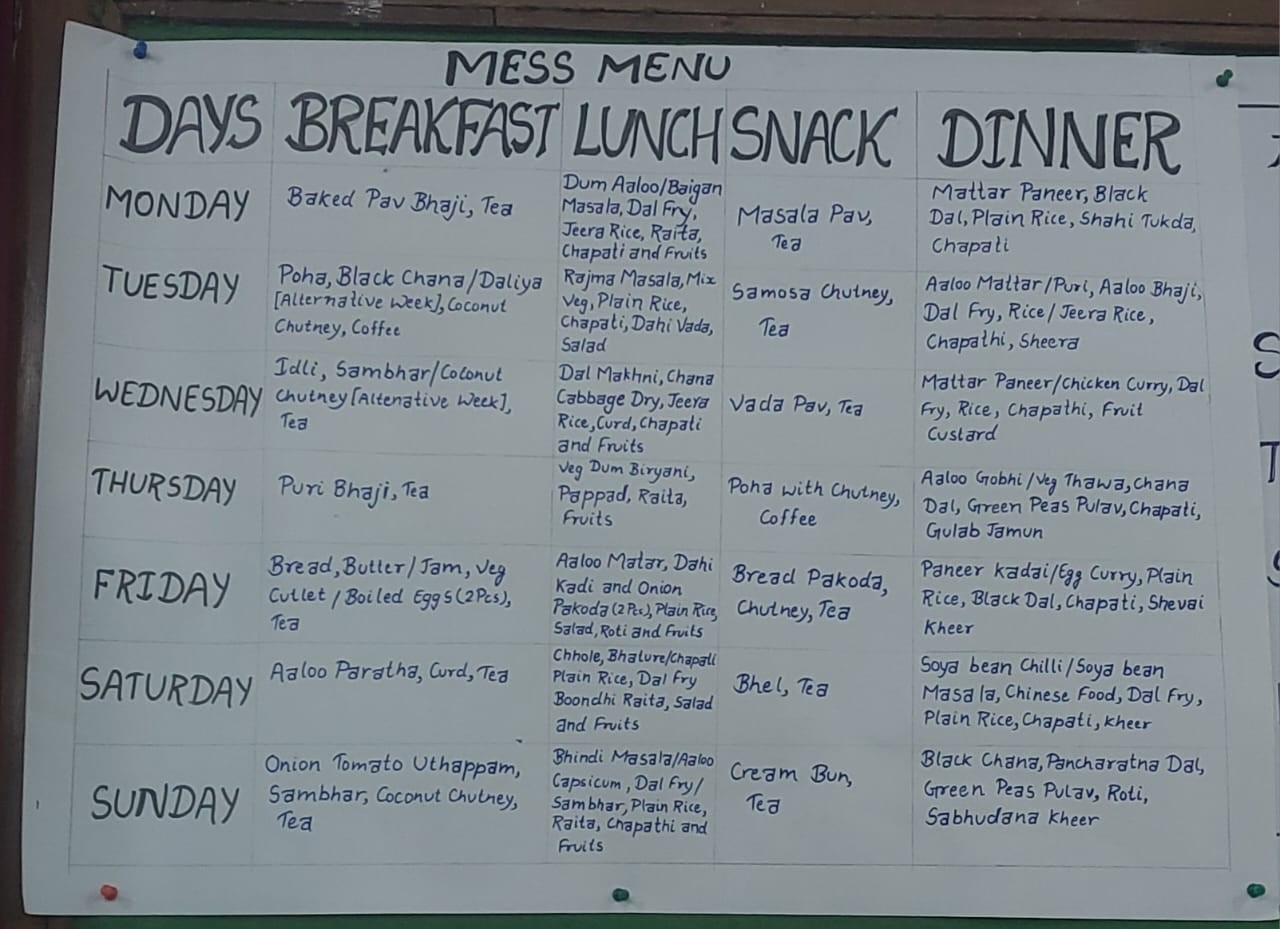 MESS MENU
DAYS BREAKFAST LUNCH SNACK DINNER
MONDAY
Baked Pav Bhaji, Tea
Dum Aaloo/Baigan
Masala, Dal Fry,
Jeera Rice, Raita,
Chapati and Fruits
Masala Pav,
Tea
Mattar Paneer, Black
Dal, Plain Rice, Shahi Tukda,
Chapati
TUESDAY
Poha, Black Chana/Daliya
[Alternative Week], Coconut
Chutney, Coffee
Rajma Masala, Mix
Veg, Plain Rice,
Chapati, Dahi Vada,
Salad
Samosa Chutney,
Tea
Aaloo Mattar/Puri, Aaloo Bhaji,
Dal Fry, Rice/Jeera Rice,
Chapathi, Sheera
WEDNESDAY
Idli, Sambhar/Coconut
Chutney [Altenative Week],
Tea
Dal Makhni, Chana
Cabbage Dry, Jeera
Rice, Curd, Chapati
and Fruits
Vada Pav, Tea
Mattar Paneer/Chicken Curry, Dal
Fry, Rice, Chapathi, Fruit
Custard
THURSDAY
Puri Bhaji, Tea
Veg Dum Biryani,
Pappad, Raita,
Fruits
Poha with Chutney,
Coffee
Aaloo Gobhi/Veg Thawa, Chana
Dal, Green Peas Pulav, Chapati,
Gulab Jamun
FRIDAY
Bread, Butter/Jam, Veg
Cutlet/Boiled Eggs (2Pcs),
Tea
Aaloo Matar, Dahi
Kadi and Onion
Pakoda (2 Pcs), Plain Rice,
Salad, Roti and Fruits
Bread Pakoda,
Chutney, Tea
Paneer Kadai/Egg Curry, Plain
Rice, Black Dal, Chapati, Shevai
Kheer
SATURDAY
Aaloo Paratha, Curd, Tea
Chhole, Bhature/Chapati
Plain Rice, Dal Fry
Boondhi Raita, Salad
and Fruits
Bhel, Tea
Soya bean Chilli/Soya bean
Masala, Chinese Food, Dal Fry,
Plain Rice, Chapati, Kheer
SUNDAY
Onion Tomato Uthappam,
Sambhar, Coconut Chutney,
Tea
Bhindi Masala/Aaloo
Capsicum, Dal Fry/
Sambhar, Plain Rice,
Raita, Chapathi and
Fruits
Cream Bun,
Tea
Black Chana, Pancharatna Dal,
Green Peas Pulav, Roti,
Sabhudana Kheer